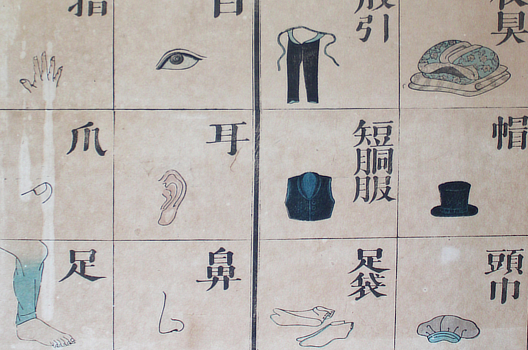 夜具
帽
頭巾
股引
短胴服
足袋
目
耳
鼻
指
爪
足